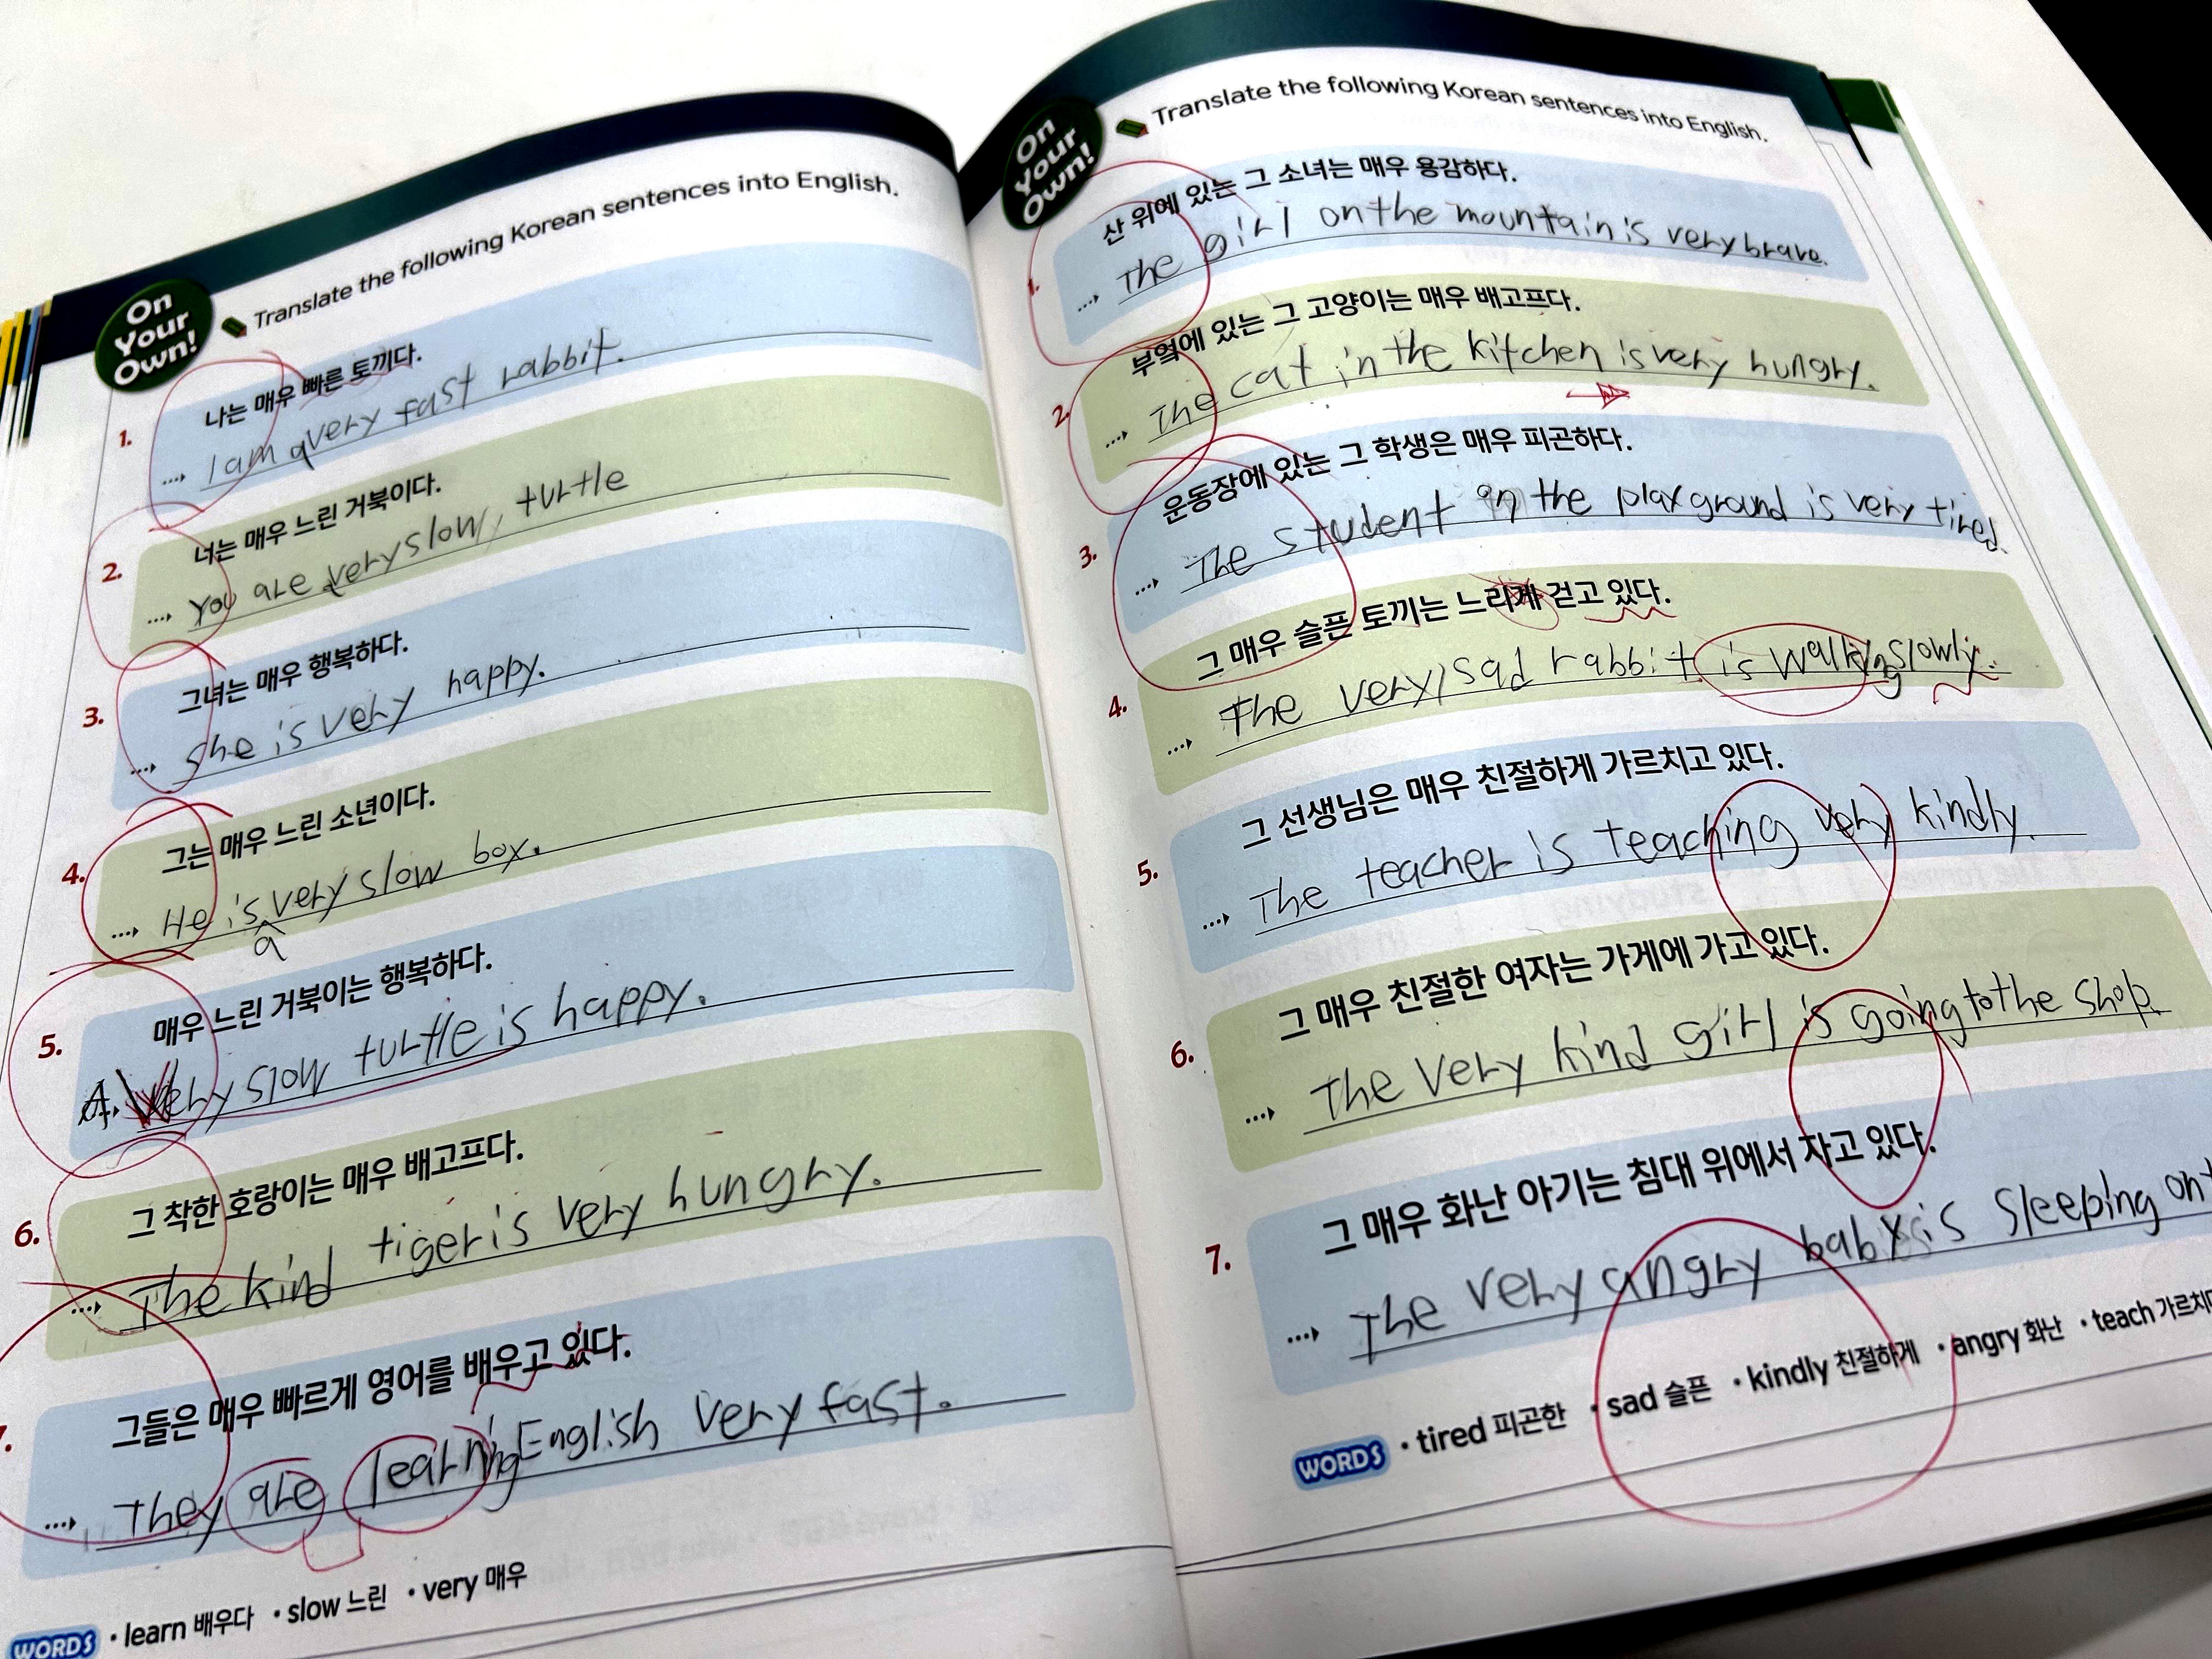 On
Your
Own!
Translate the following Korean sentences into English.
1.
나는 매우 빠른 토끼다.
I am a very fast rabbit.
2.
너는 매우 느린 거북이다.
you are very slow, turtle
3.
그녀는 매우 행복하다.
she is very happy.
4.
그는 매우 느린 소년이다.
He is very slow boy.
a
5.
매우 느린 거북이는 행복하다.
A very slow turtle is happy.
6.
그 착한 호랑이는 매우 배고프다.
The kind tiger is very hungry.
7.
그들은 매우 빠르게 영어를 배우고 있다.
They are learning English very fast.
WORDS • learn 배우다 • slow 느린 • very 매우
On
Your
Own!
Translate the following Korean sentences into English.
1.
산 위에 있는 그 소녀는 매우 용감하다.
The girl on the mountain is very brave.
2.
부엌에 있는 그 고양이는 매우 배고프다.
The cat in the kitchen is very hungry.
3.
운동장에 있는 그 학생은 매우 피곤하다.
The student in the playground is very tired.
4.
그 매우 슬픈 토끼는 느리게 걷고 있다.
The very sad rabbit is walking slowly.
5.
그 선생님은 매우 친절하게 가르치고 있다.
The teacher is teaching very kindly.
6.
그 매우 친절한 여자는 가게에 가고 있다.
The very kind girl is going to the shop.
7.
그 매우 화난 아기는 침대 위에서 자고 있다.
The very angry baby is sleeping on
WORDS • tired 피곤한 • sad 슬픈 • kindly 친절하게 • angry 화난 • teach 가르치다